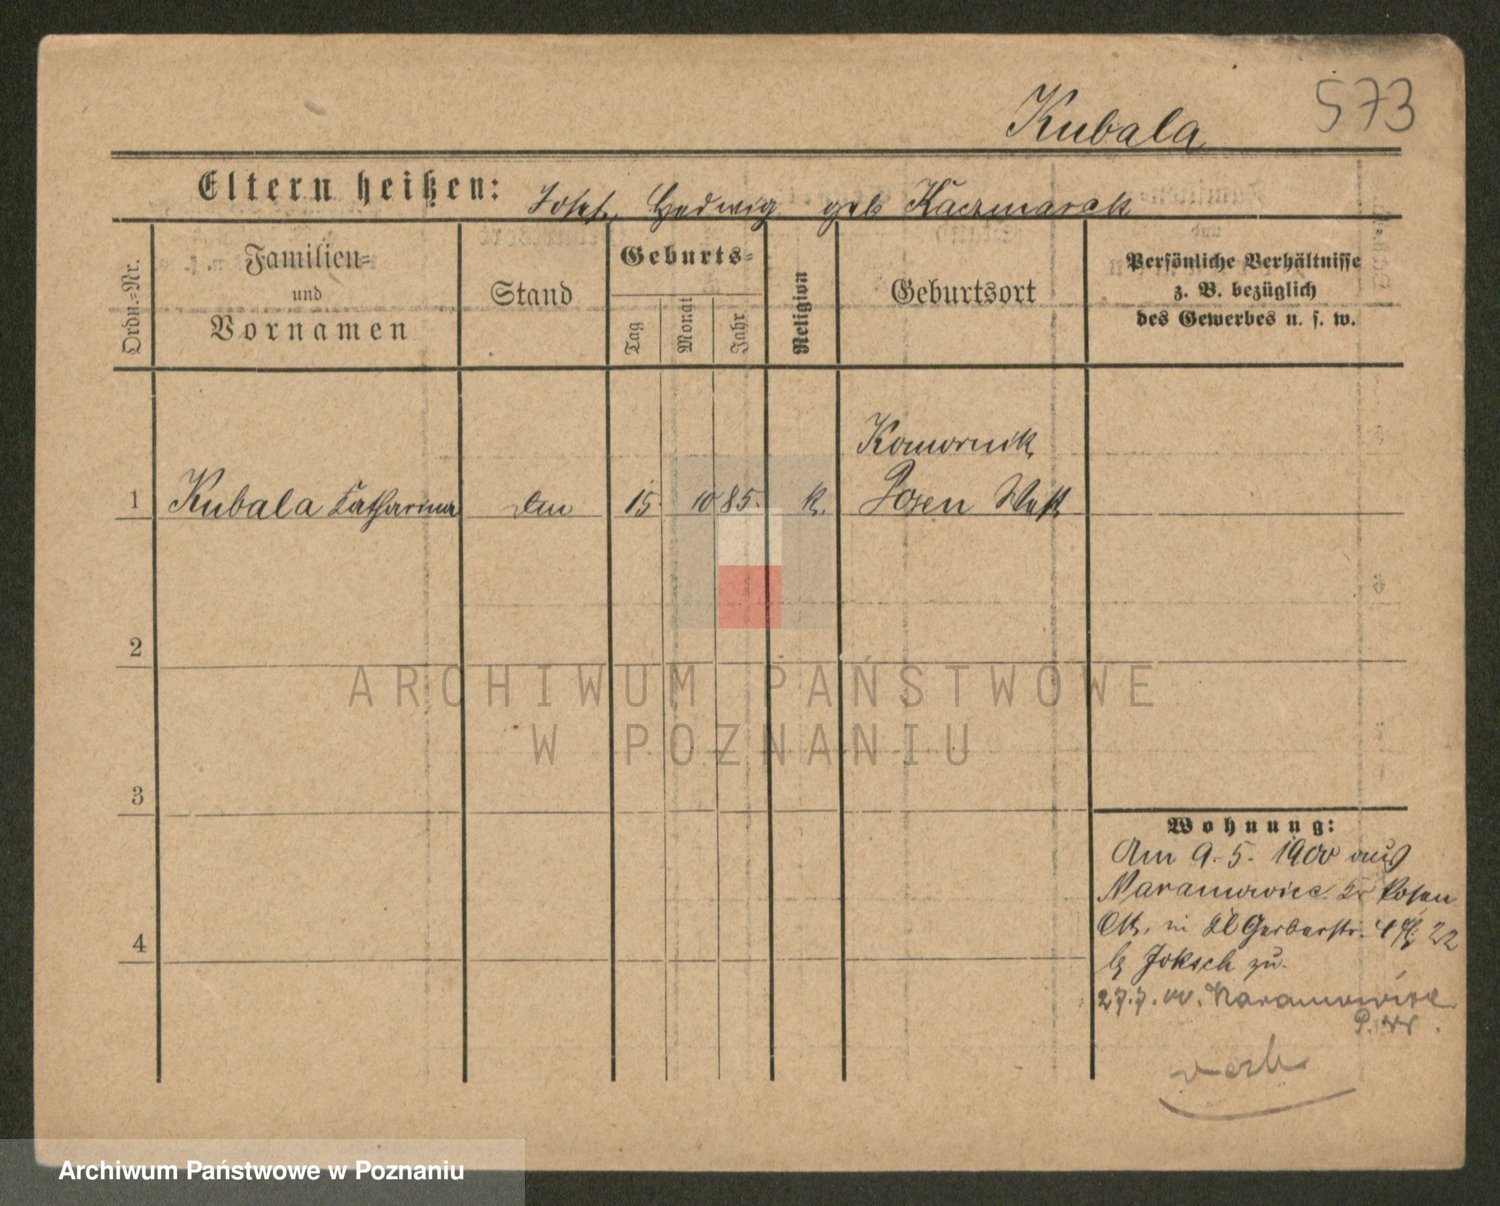 573
Kubala
Eltern heißen: Josef, Hedwig geb Kaczmarek
Ordn.-Nr.
Familien-
und
Vornamen
Stand
Geburts-
Tag
Monat
Jahr
Religion
Geburtsort
Persönliche Verhältnisse
z. B. bezüglich
des Gewerbes u. s. w.
Komornik
1 Kubala Katharina 15. 10 85. k. Posen West
2
ARCHIWUM PAŃSTWOWE
W POZNANIU
3
Wohnung:
Am 9. 5. 1900 aus
Naramowice Kr Posen
Ost, in Kl Gerberstr. 22
b Joksch zu.
4
27.7.00. Naramowice
P.
Archiwum Państwowe w Poznaniu